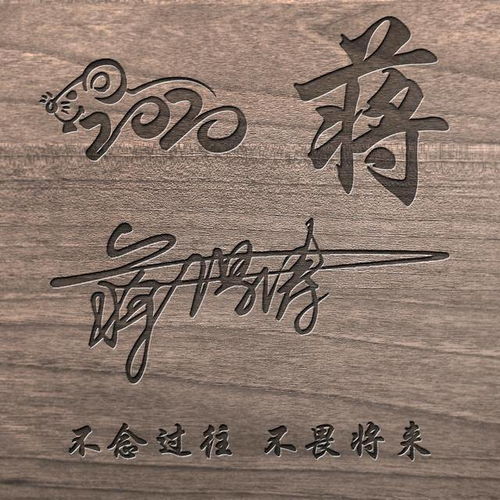 2020 蒋
不念过往 不畏将来